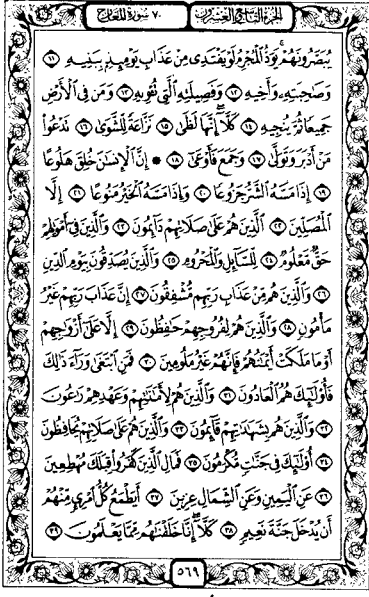 الجزء التاسع والعشرون ٧٠ سورة المعارج
يُبَصَّرُونَهُمْ يَوَدُّ الْمُجْرِمُ لَوْ يَفْتَدِي مِنْ عَذَابِ يَوْمِئِذٍ بِبَنِيهِ ١١
وَصَاحِبَتِهِ وَأَخِيهِ ١٢ وَفَصِيلَتِهِ الَّتِي تُؤْوِيهِ ١٣ وَمَن فِي الْأَرْضِ
جَمِيعًا ثُمَّ يُنجِيهِ ١٤ كَلَّا إِنَّهَا لَظَىٰ ١٥ نَزَّاعَةً لِّلشَّوَىٰ ١٦ تَدْعُوا
مَنْ أَدْبَرَ وَتَوَلَّىٰ ١٧ وَجَمَعَ فَأَوْعَىٰ ١٨ * إِنَّ الْإِنسَانَ خُلِقَ هَلُوعًا
١٩ إِذَا مَسَّهُ الشَّرُّ جَزُوعًا ٢٠ وَإِذَا مَسَّهُ الْخَيْرُ مَنُوعًا ٢١ إِلَّا
الْمُصَلِّينَ ٢٢ الَّذِينَ هُمْ عَلَىٰ صَلَاتِهِمْ دَائِمُونَ ٢٣ وَالَّذِينَ فِي أَمْوَالِهِمْ
حَقٌّ مَّعْلُومٌ ٢٤ لِّلسَّائِلِ وَالْمَحْرُومِ ٢٥ وَالَّذِينَ يُصَدِّقُونَ بِيَوْمِ الدِّينِ
٢٦ وَالَّذِينَ هُم مِّنْ عَذَابِ رَبِّهِم مُّشْفِقُونَ ٢٧ إِنَّ عَذَابَ رَبِّهِمْ غَيْرُ
مَأْمُونٍ ٢٨ وَالَّذِينَ هُمْ لِفُرُوجِهِمْ حَافِظُونَ ٢٩ إِلَّا عَلَىٰ أَزْوَاجِهِمْ
أَوْ مَا مَلَكَتْ أَيْمَانُهُمْ فَإِنَّهُمْ غَيْرُ مَلُومِينَ ٣٠ فَمَنِ ابْتَغَىٰ وَرَاءَ ذَٰلِكَ
فَأُولَٰئِكَ هُمُ الْعَادُونَ ٣١ وَالَّذِينَ هُمْ لِأَمَانَاتِهِمْ وَعَهْدِهِمْ رَاعُونَ
٣٢ وَالَّذِينَ هُم بِشَهَادَاتِهِمْ قَائِمُونَ ٣٣ وَالَّذِينَ هُمْ عَلَىٰ صَلَاتِهِمْ يُحَافِظُونَ
٣٤ أُولَٰئِكَ فِي جَنَّاتٍ مُّكْرَمُونَ ٣٥ فَمَالِ الَّذِينَ كَفَرُوا قِبَلَكَ مُهْطِعِينَ
٣٦ عَنِ الْيَمِينِ وَعَنِ الشِّمَالِ عِزِينَ ٣٧ أَيَطْمَعُ كُلُّ امْرِئٍ مِّنْهُمْ
أَن يُدْخَلَ جَنَّةَ نَعِيمٍ ٣٨ كَلَّا إِنَّا خَلَقْنَاهُم مِّمَّا يَعْلَمُونَ ٣٩
٥٦٩